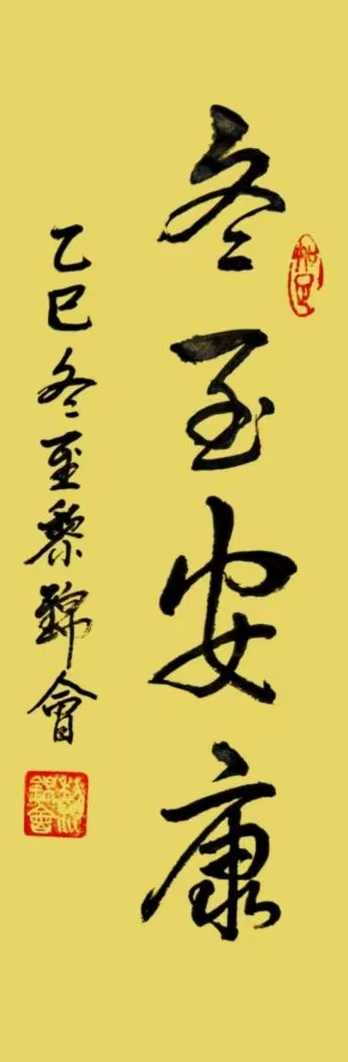 冬至安康
乙巳冬至黎錦會